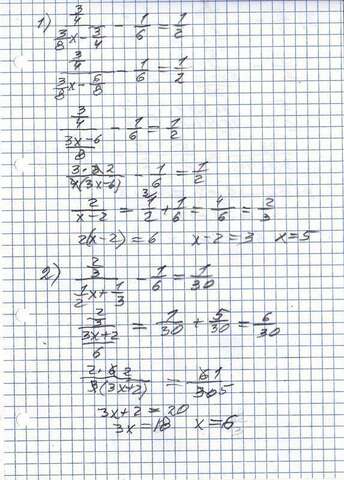 1) (3/4)/(3/8 x - 3/4) - 1/6 = 1/2
(3/4)/(3/8 x - 6/8) - 1/6 = 1/2
(3/4)/((3x-6)/8) - 1/6 = 1/2
3·8 2/4(3x-6) - 1/6 = 1/2
2/(x-2) = 3/ 1/2 + 1/6 = 4/6 = 2/3
2(x-2) = 6 x-2 = 3 x = 5
2) (2/3)/(1/2 x + 1/3) - 1/6 = 1/30
(2/3)/((3x+2)/6) = 1/30 + 5/30 = 6/30
2·6 2/3(3x+2) = 6 1/30 5
3x+2 = 20
3x = 18 x = 6